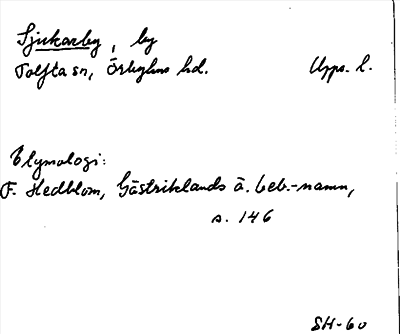 Sjukarby, by
Tolfta sn, Örbyhus hd. Upps. l.
Etymologi:
F. Hedblom, Gästriklands ä. beb.-namn,
s. 146
SH-60